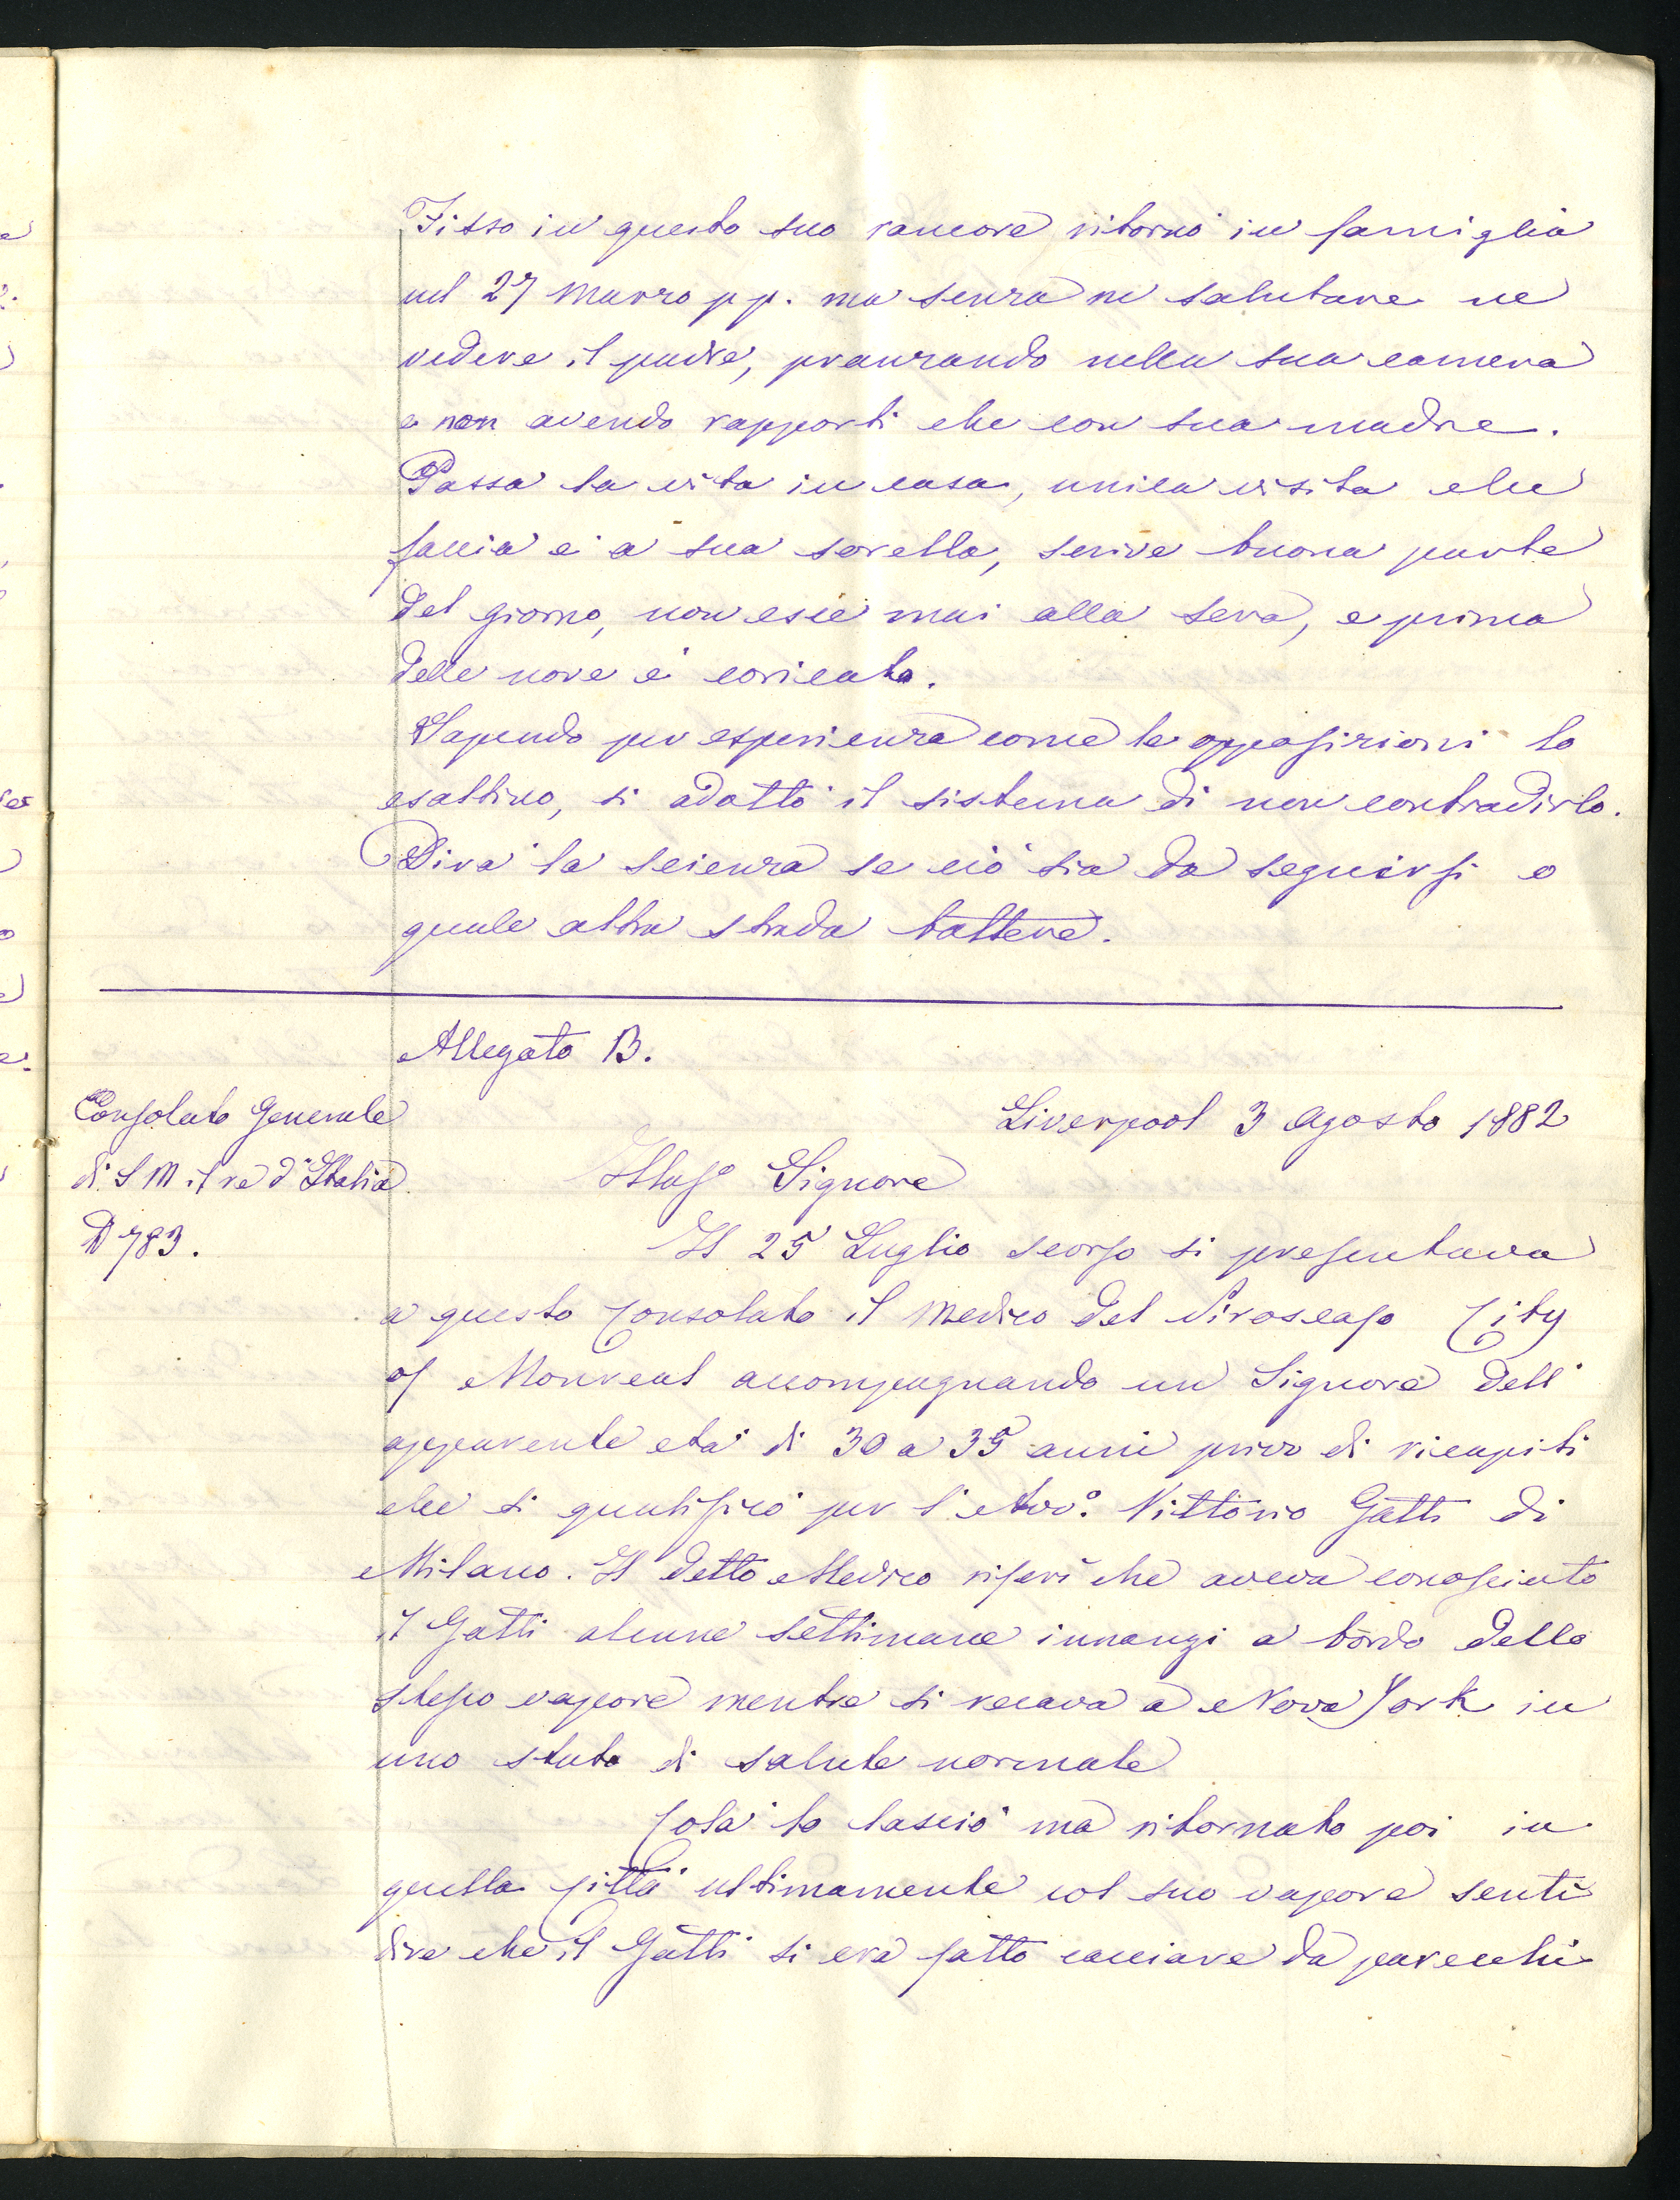 Fisso in questo suo rancore ritornò in famiglia
nel 27 Marzo p p. ma senza ne salutare ne
vedere il padre, pranzando nella sua camera
e non avendo rapporti che con sua madre.
Passa la vita in casa, unica visita che
faccia è a sua sorella, scrive buona parte
del giorno, non esce mai alla sera, e prima
delle nove è coricato.
Sapendo per esperienza come le opposizioni lo
esaltino, si adottò il sistema di non contradirlo.
Dirà la scienza se ciò sia da seguirsi o
quale altra strada battere.
Allegato B.
Consolato Generale
di S M il re d'Italia
N 783.
Liverpool 3 Agosto 1882
Illusº Signore
Il 25 Luglio scorso si presentava
a questo Consolato il Medico del Piroscafo City
of Monreal accompagnando un Signore dell'
apparente età di 30 a 35 anni privo di ricapiti
che si qualificò per l'Avvº. Vittorio Gatti di
Milano. Il detto Medico riferì che aveva conosciuto
il Gatti alcune settimane innanzi a bordo dello
stesso vapore mentre si recava a Nova York in
uno stato di salute normale
Colà lo lasciò ma ritornato poi in
quella Città ultimamente col suo vapore sentì
dire che il Gatti si era fatto cacciare da parecchi